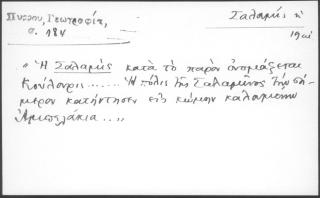 Πύρρου, Γεωγραφία, Σαλαμίς ἡ
σ. 184
« Ἡ Σαλαμὶς κατὰ τὸ παρὸν ὀνομάζεται
Κούλουρις...... Ἡ πόλις τῆς Σαλαμῖνος τὴν σή-
μερον κατήντησεν εἰς κώμην καλουμένην
Ἀμπελάκια...»